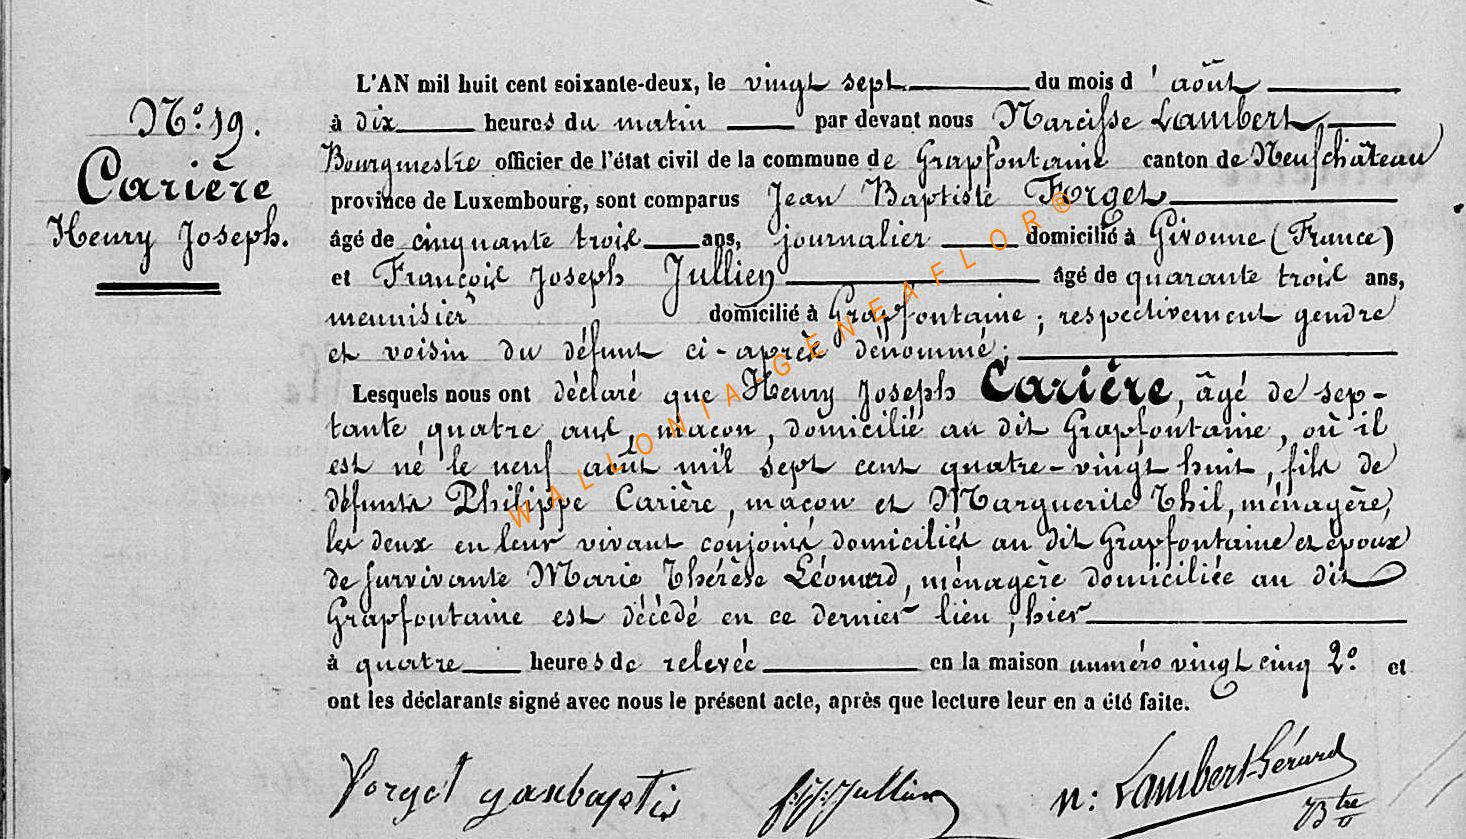 L'AN mil huit cent soixante-deux, le vingt sept du mois d'août
à dix heures du matin par devant nous Narcisse Lambert
Bourgmestre officier de l'état civil de la commune de Grapfontaine canton de Neufchâteau
province de Luxembourg, sont comparus Jean Baptiste Forget
âgé de cinquante trois ans, journalier domicilié à Givonne (France)
et François Joseph Jullien âgé de quarante trois ans,
menuisier domicilié à Grapfontaine ; respectivement gendre
et voisin du défunt ci-après dénommé ;
Lesquels nous ont déclaré que Henry Joseph Carière, âgé de sep-
tante quatre ans, maçon, domicilié au dit Grapfontaine, où il
est né le neuf août mil sept cent quatre-vingt huit, fils de
défunts Philippe Carière, maçon et Marguerite Thil, ménagère,
les deux en leur vivant conjoints domiciliés au dit Grapfontaine et époux
de survivante Marie Thérèse Léonard, ménagère domiciliée au dit
Grapfontaine est décédé en ce dernier lieu, hier
à quatre heures de relevée en la maison numéro vingt cinq 2° et
ont les déclarants signé avec nous le présent acte, après que lecture leur en a été faite.
N° 19.
Carière
Henry Joseph.
Forget janbaptis
f: J: Jullien
N: Lambert-Gérard
Btre
WALLONIALGENEAFLOR®